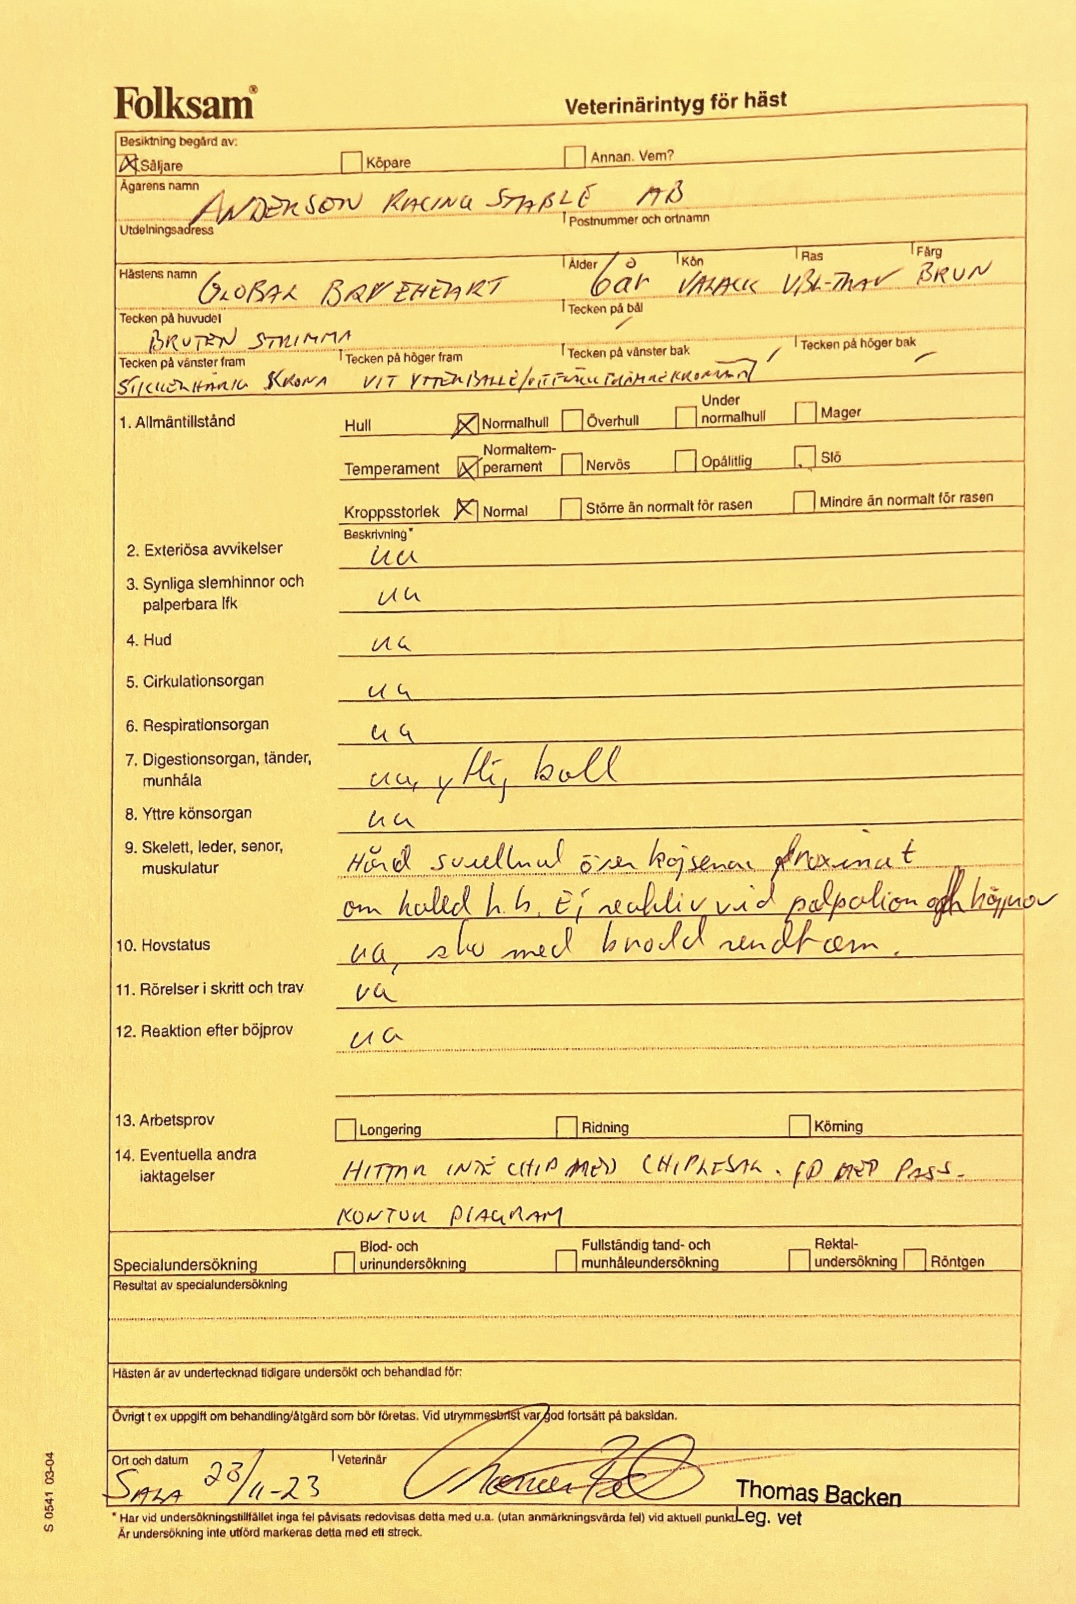 Folksam®
Veterinärintyg för häst
Besiktning begärd av:
Säljare Köpare Annan. Vem?
Ägarens namn
ANDERSON RACING STABLE AB
Utdelningsadress Postnummer och ortnamn
Hästens namn Ålder Kön Ras Färg
GLOBAL BRAVEHEART 6 år VALACK VBL-TRAV BRUN
Tecken på huvudet Tecken på bål
BRUTEN STRIMMA
Tecken på vänster fram Tecken på höger fram Tecken på vänster bak Tecken på höger bak
STICKELHÅRIG KRONA VIT YTTERBALLE
1. Allmäntillstånd
Hull Normalhull Överhull Under normalhull Mager
Temperament Normaltem-perament Nervös Opålitlig Slö
Kroppsstorlek Normal Större än normalt för rasen Mindre än normalt för rasen
Beskrivning*
2. Exteriösa avvikelser ua
3. Synliga slemhinnor och
palperbara lfk ua
4. Hud ua
5. Cirkulationsorgan ua
6. Respirationsorgan ua
7. Digestionsorgan, tänder,
munhåla ua, ytlig koll
8. Yttre könsorgan ua
9. Skelett, leder, senor,
muskulatur Hård svullnad över böjsenan proximat
om kotled h.b. Ej reaktiv vid palpation och böjprov
10. Hovstatus ua, sko med brodd runtom.
11. Rörelser i skritt och trav ua
12. Reaktion efter böjprov ua
13. Arbetsprov Longering Ridning Körning
14. Eventuella andra
iaktagelser HITTAR INTE CHIP MED CHIPLESAR. ID MED PASS-
KONTUR DIAGRAM
Specialundersökning Blod- och urinundersökning Fullständig tand- och munhåleundersökning Rektal-undersökning Röntgen
Resultat av specialundersökning
Hästen är av undertecknad tidigare undersökt och behandlad för:
Övrigt t ex uppgift om behandling/åtgärd som bör företas. Vid utrymmesbrist var god fortsätt på baksidan.
Ort och datum Veterinär
SALA 23/11-23
Thomas Backen
Leg. vet
* Har vid undersökningstillfället inga fel påvisats redovisas detta med u.a. (utan anmärkningsvärda fel) vid aktuell punkt.
Är undersökning inte utförd markeras detta med ett streck.
S 0541 03-04